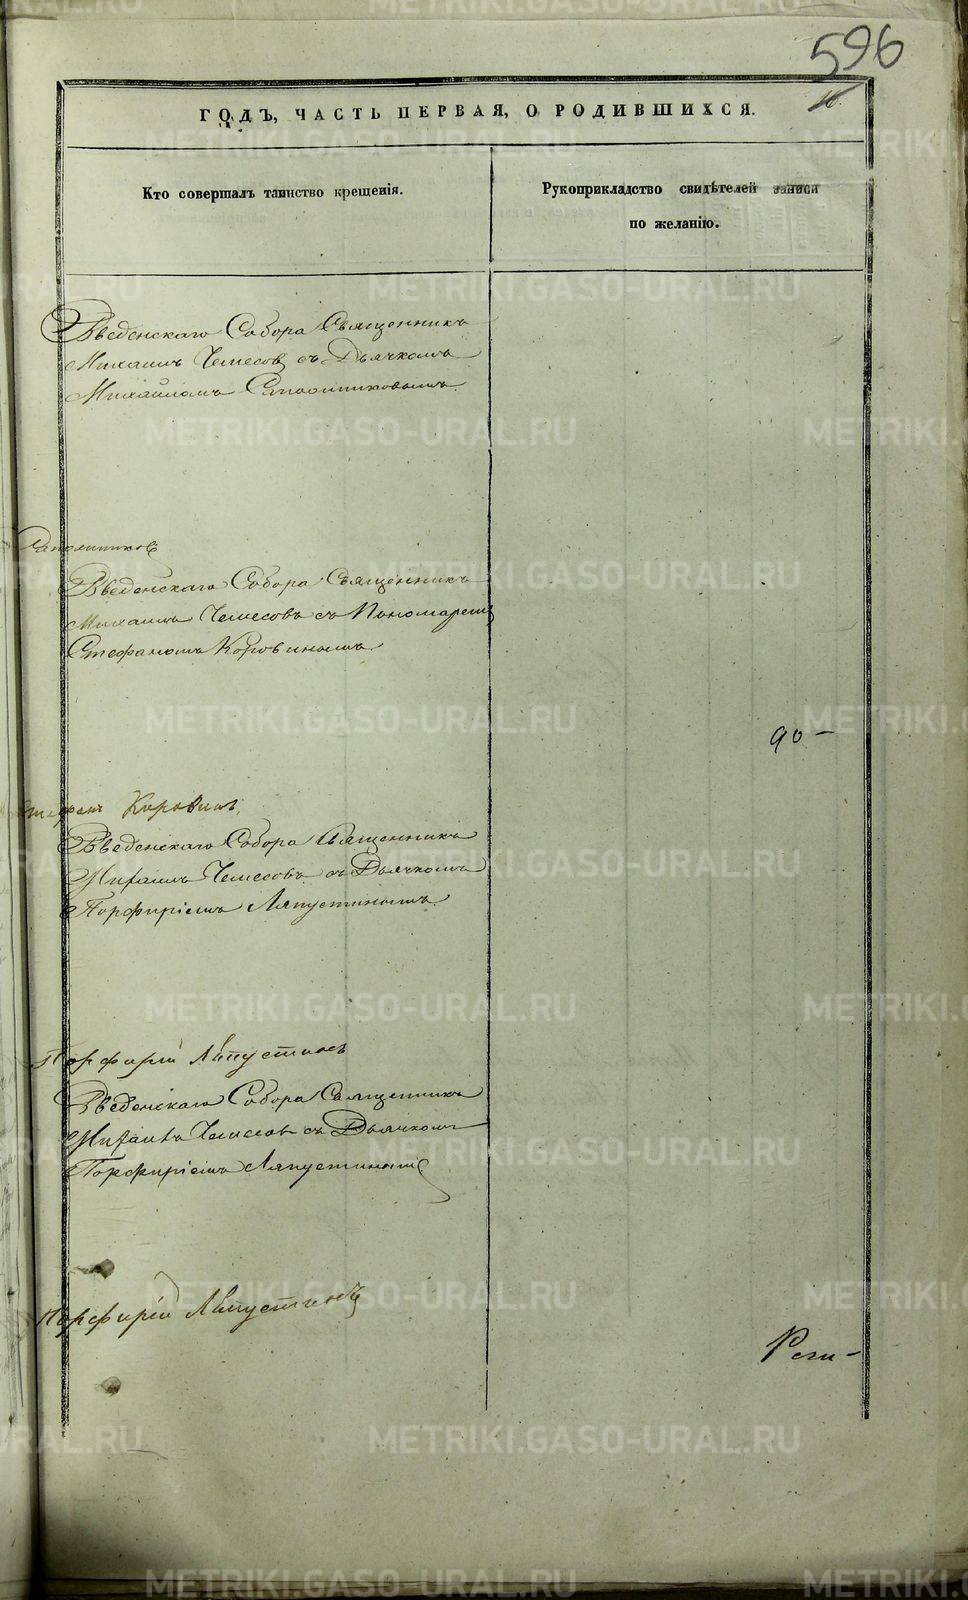 596
16
ГОДЪ, ЧАСТЬ ПЕРВАЯ, О РОДИВШИХСЯ.
Кто совершалъ таинство крещенія.
Рукоприкладство свидѣтелей записи
по желанію.
Введенскаго Собора Священникъ
Михаилъ Чемесов съ Дьячкомъ
Михаиломъ Сапожниковымъ
Сапожников
Введенскаго Собора Священникъ
Михаилъ Чемесовъ съ Пономаремъ
Стефаномъ Коровинымъ.
90 –
Стефанъ Коровинъ
Введенскаго Собора Священникъ
Михаилъ Чемесовъ съ Дьячкомъ
Порфиріемъ Ляпустинымъ
Порфирій Ляпустинъ
Введенскаго Собора Священникъ
Михаилъ Чемесов съ Дьячкомъ
Порфиріемъ Ляпустиным
Порфирій Ляпустинъ
METRIKI.GASO-URAL.RU